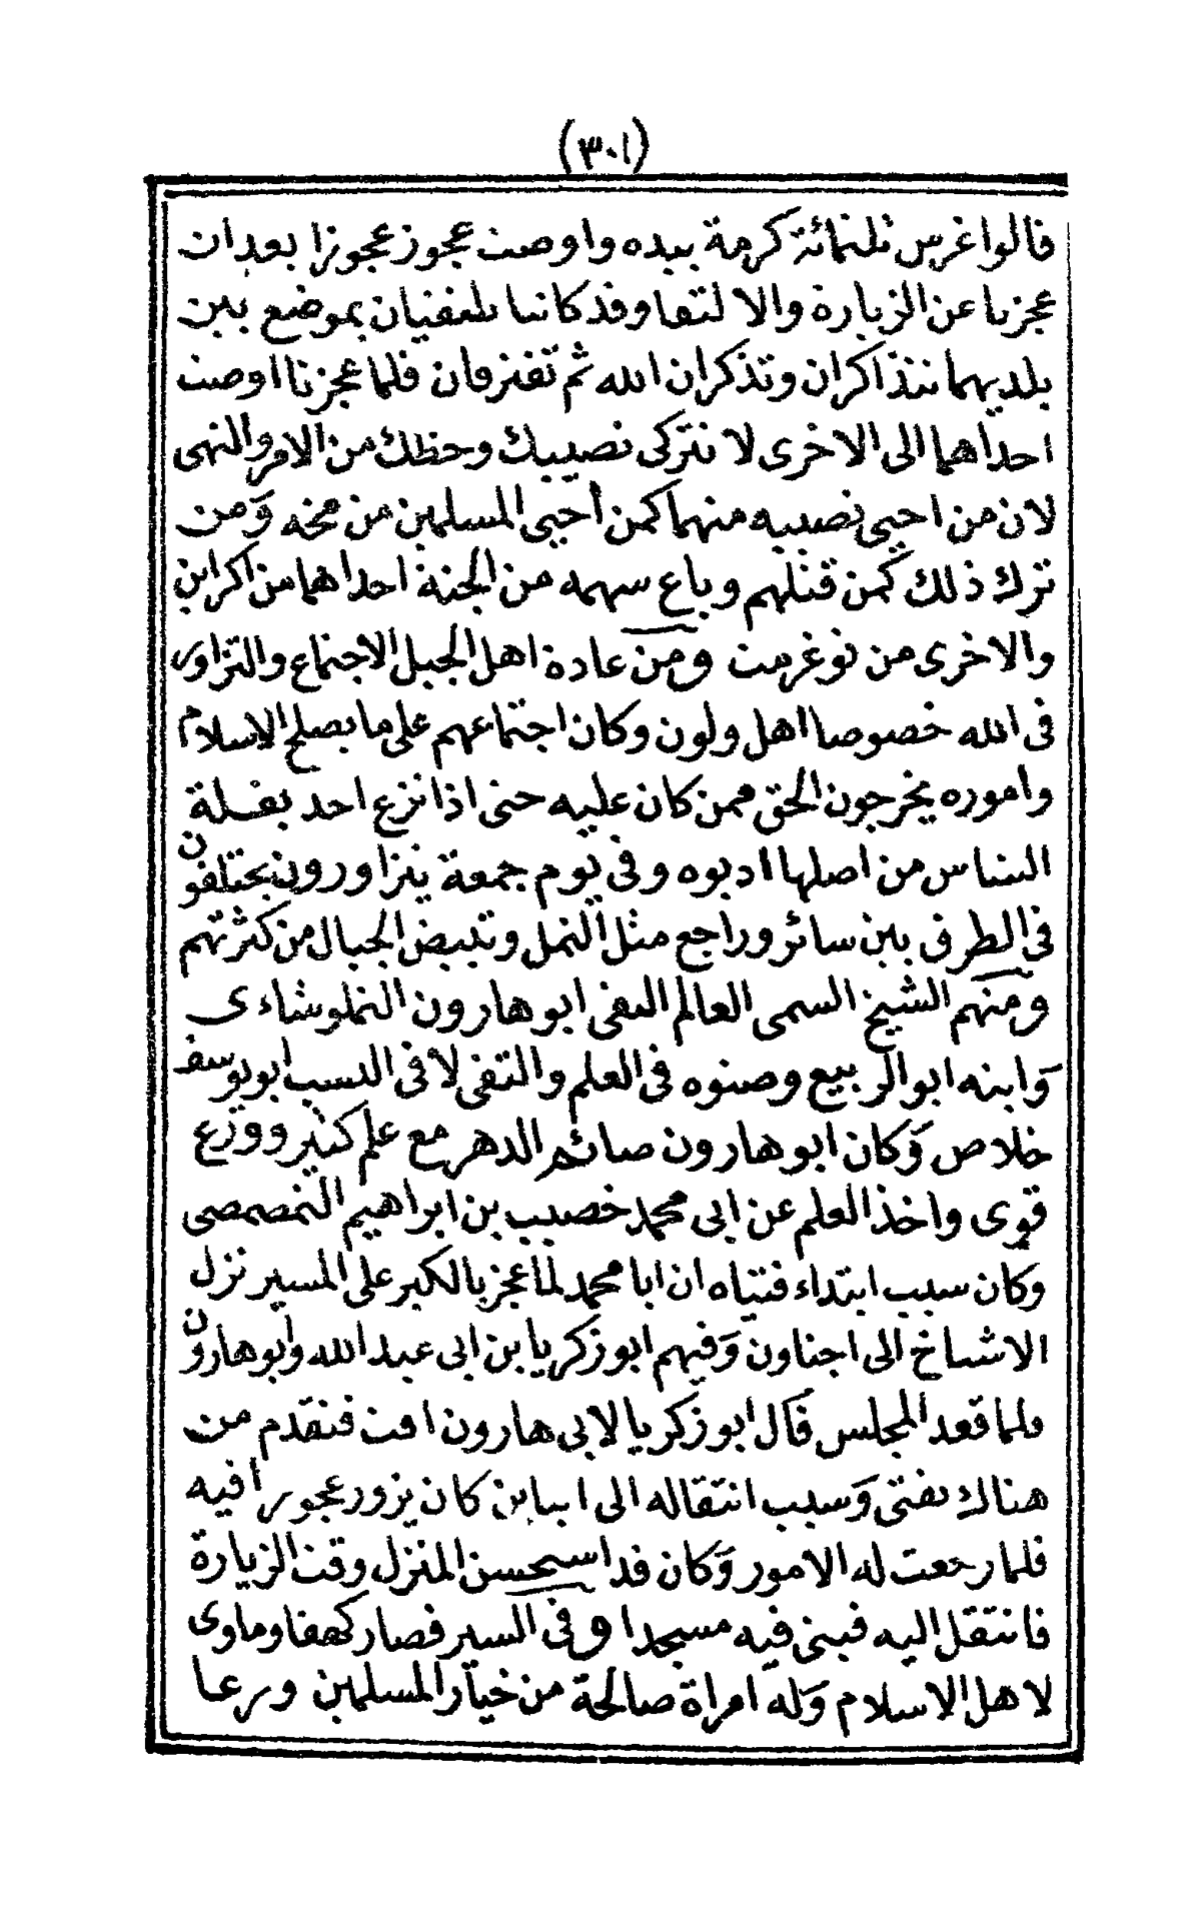 (٣٠١)
قالوا غرس ثلثمائة كرمة بيده واوصت عجوز عجوزا بعد ان
عجزتا عن الزيارة والالتقا وقد كانتا تلتقيان بموضع بين
بلديهما تتذاكران وتذكران الله ثم تفترقان فلما عجزتا اوصت
احداهما الى الاخرى لا تتركى نصيبك وحظك من الامر والنهى
لان من احيى نصيبه منهما كمن أحيى المسلمين من مخه ومن
ترك ذلك كمن قتلهم وباع سهمه من الجنة احداهما من اكراين
والاخرى من توغرمت ومن عادة اهل الجبل الاجتماع والتزاور
فى الله خصوصا اهل ولون وكان اجتماعهم على ما يصلح الاسلام
واموره يخرجون الحق ممن كان عليه حتى اذا نزع احد بقلة
الناس من اصلها ادبوه وفى يوم جمعة يتزاورون يختلفون
فى الطرق بين سائر وراجع مثل النمل وتبيض الجبال من كثرتهم
ومنهم الشيخ السمى العالم التقى ابو هارون التملوشاءى
وابنه ابو الربيع وصنوه فى العلم والتقى لا فى النسب ابو يوسف
خلاص وكان ابو هارون صائم الدهر مع علم كثير وورع
قوى واخذ العلم عن ابى محمد خصيب بن ابراهيم التمصمصى
وكان سبب ابتداء فتياه ان ابا محمد لما عجز بالكبر على المسير نزل
الاشياخ الى اجناون وفيهم ابو زكريا بن ابى عبد الله وابو هارون
ولما قعد المجلس قال ابو زكريا لابى هارون افت فتقدم من
هناك يفتى وسبب انتقاله الى ابناين كان يزور عجوزا فيه
فلما رجعت له الامور وكان قد استحسن المنزل وقت الزيارة
فانتقل اليه فبنى فيه مسجدا وفى السير فصار كهفا وماوى
لاهل الاسلام وله امراة صالحة من خيار المسلمين ورعا